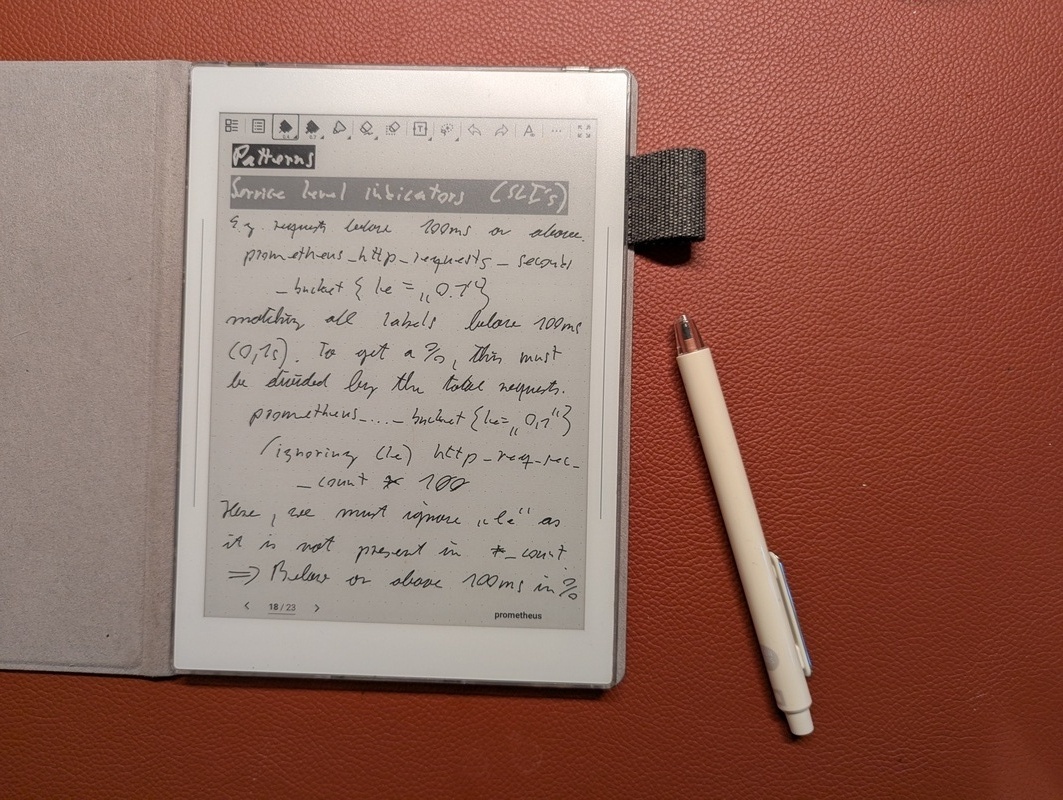 Patterns
Service level indicators (SLI's)
E.g. requests below 100ms or above.
prometheus_http_requests_seconds
_bucket { le = „0.1"}
matching all labels below 100ms
(0,1s). To get a %, this must
be divided by the total requests.
prometheus_..._bucket {le=„0,1"}
/ignoring (le) http_req_sec_
_count * 100
Here, we must ignore „le" as
it is not present in *_count.
=> Below or above 100ms in %
18 / 23
prometheus